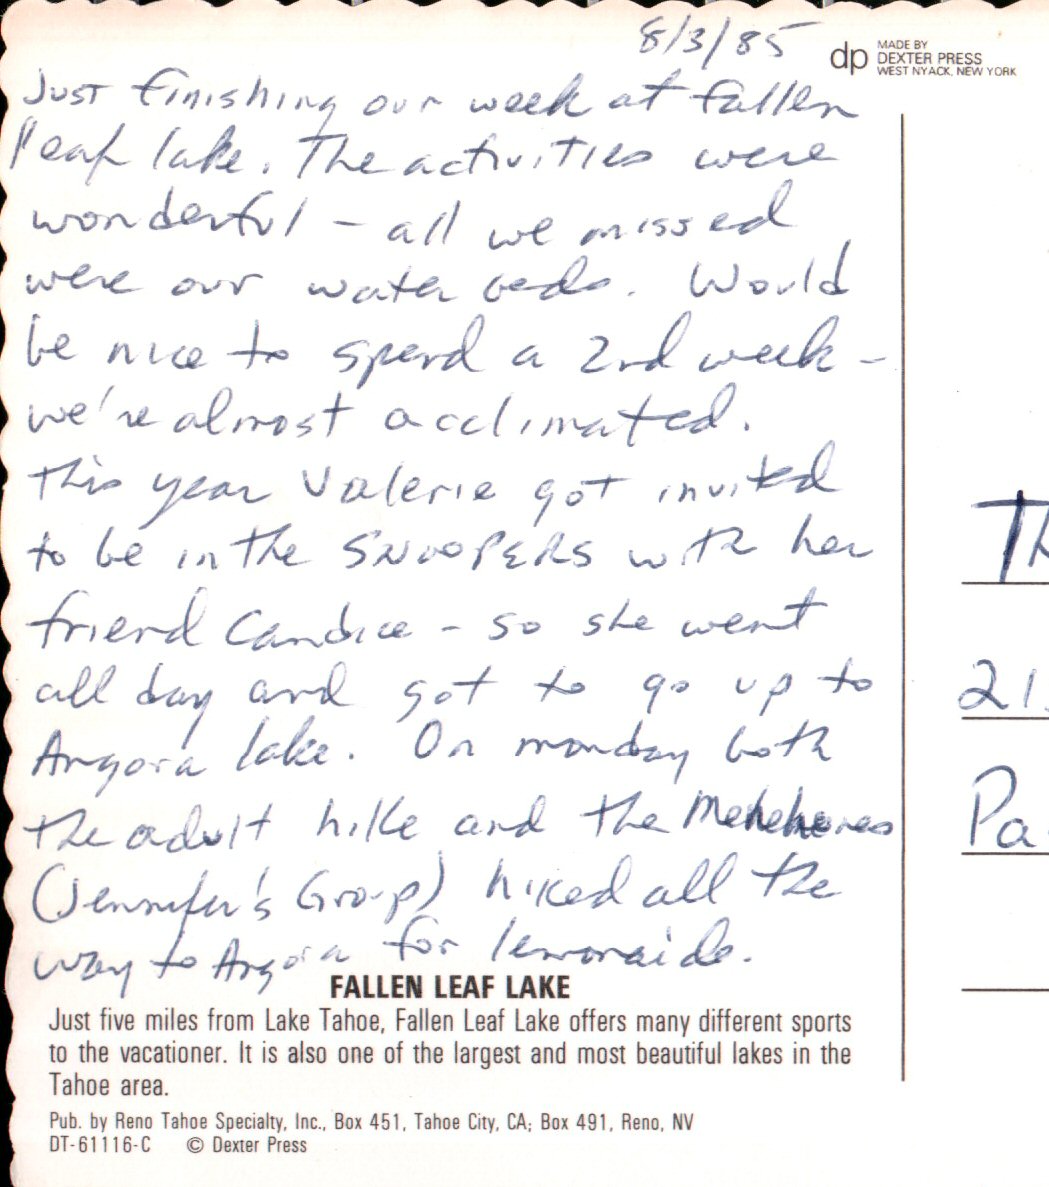 8/3/85
dp MADE BY
DEXTER PRESS
WEST NYACK, NEW YORK
Just finishing our week at fallen
leaf lake. The activities were
wonderful – all we missed
were our water beds. Would
be nice to spend a 2nd week –
we're almost acclimated.
This year Valerie got invited
to be in the SNOOPERS with her
friend Candice – so she went
all day and got to go up to
Angora lake. On monday both
the adult hike and the
(Jennifer's Group) hiked all the
way to Angora for lemonaide.
Th
21
Pa
FALLEN LEAF LAKE
Just five miles from Lake Tahoe, Fallen Leaf Lake offers many different sports
to the vacationer. It is also one of the largest and most beautiful lakes in the
Tahoe area.
Pub. by Reno Tahoe Specialty, Inc., Box 451, Tahoe City, CA; Box 491, Reno, NV
DT-61116-C © Dexter Press